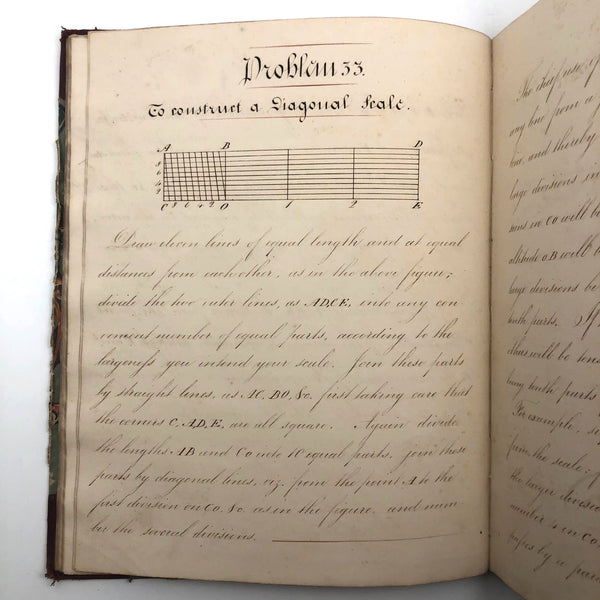 Problem 33.
To construct a Diagonal Scale.
A B D
8
6
4
2
C 8 6 4 2 O 1 2 E
Draw eleven lines of equal length and at equal
distances from each other, as in the above figure;
divide the two outer lines, as AD, CE, into any con
venient number of equal parts, according to the
largeness you intend your scale. Join these parts
by straight lines, as AC, BO, &c. first taking care that
the corners C, A, D, E, are all square. Again divide
the lengths AB and CO into 10 equal parts, join these
parts by diagonal lines, viz. from the point A to the
first division on CO, &c. as in the figure, and num
ber the several divisions.
The chief use of
any line from a
line, and thereby
large divisions in
sions in CO will be
altitude OB will
large divisions be
tenth parts.
thers will be tens
being tenth parts
For example,
from the scale;
the larger divisions
number 4 in CO
by a par